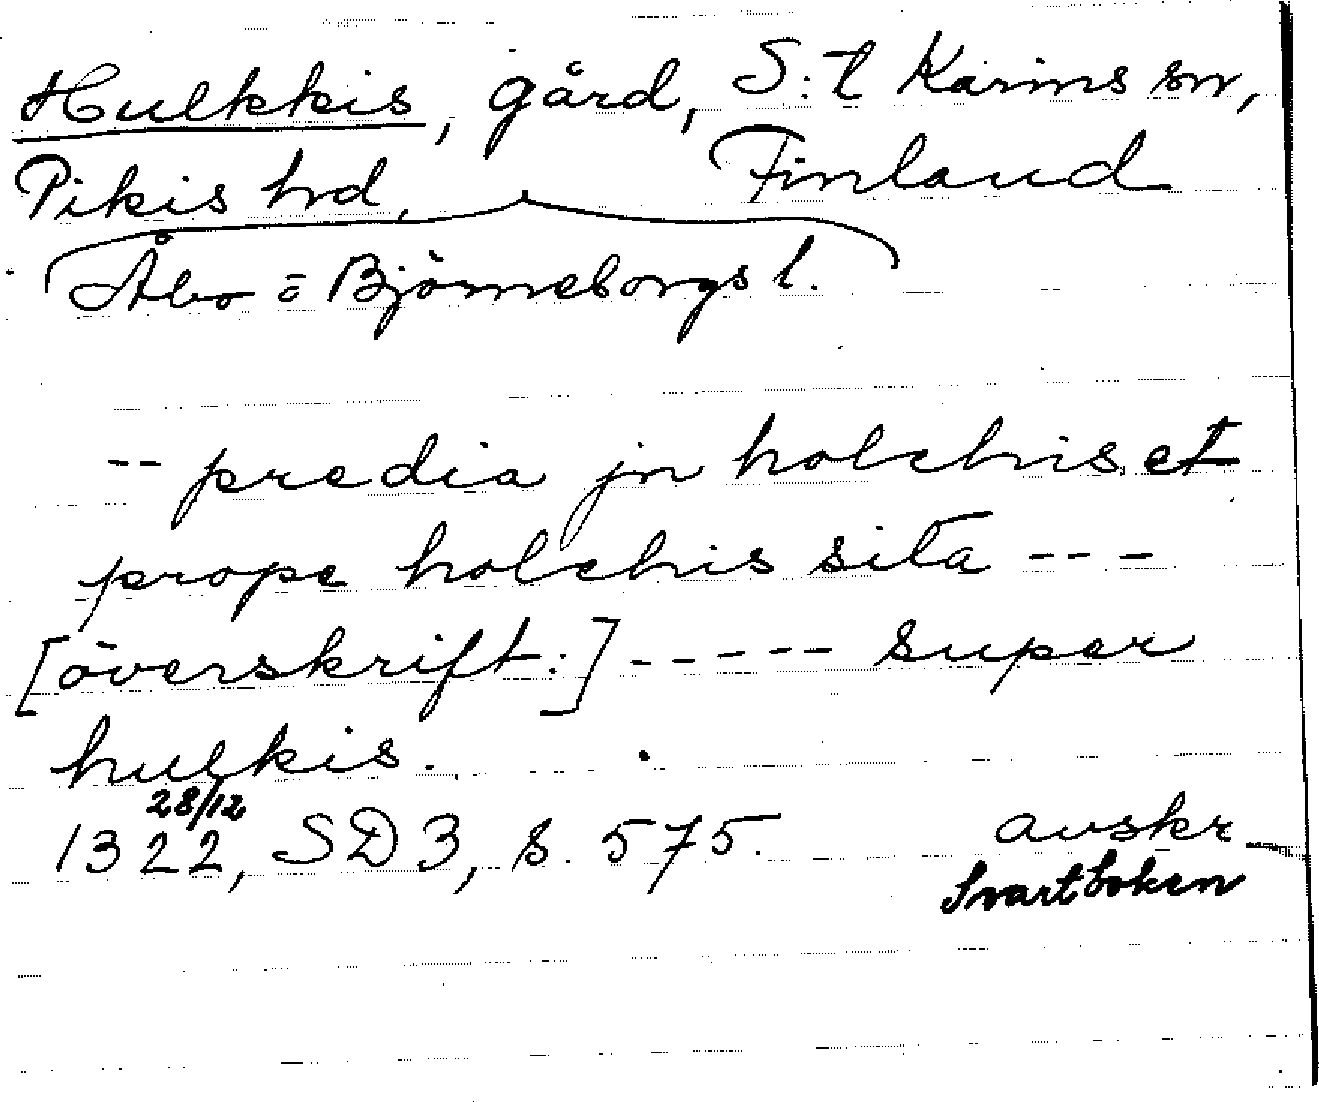 Hulkkis, gård, S:t Karins sn,
Pikis hrd, Finland
Åbo o Björneborgs l.
-- predia jn holchis et
prope holchis sita ---
[överskrift:] ----- super
hulkis.
28/12
1322, SD 3, s. 575. avskr
Svartboken